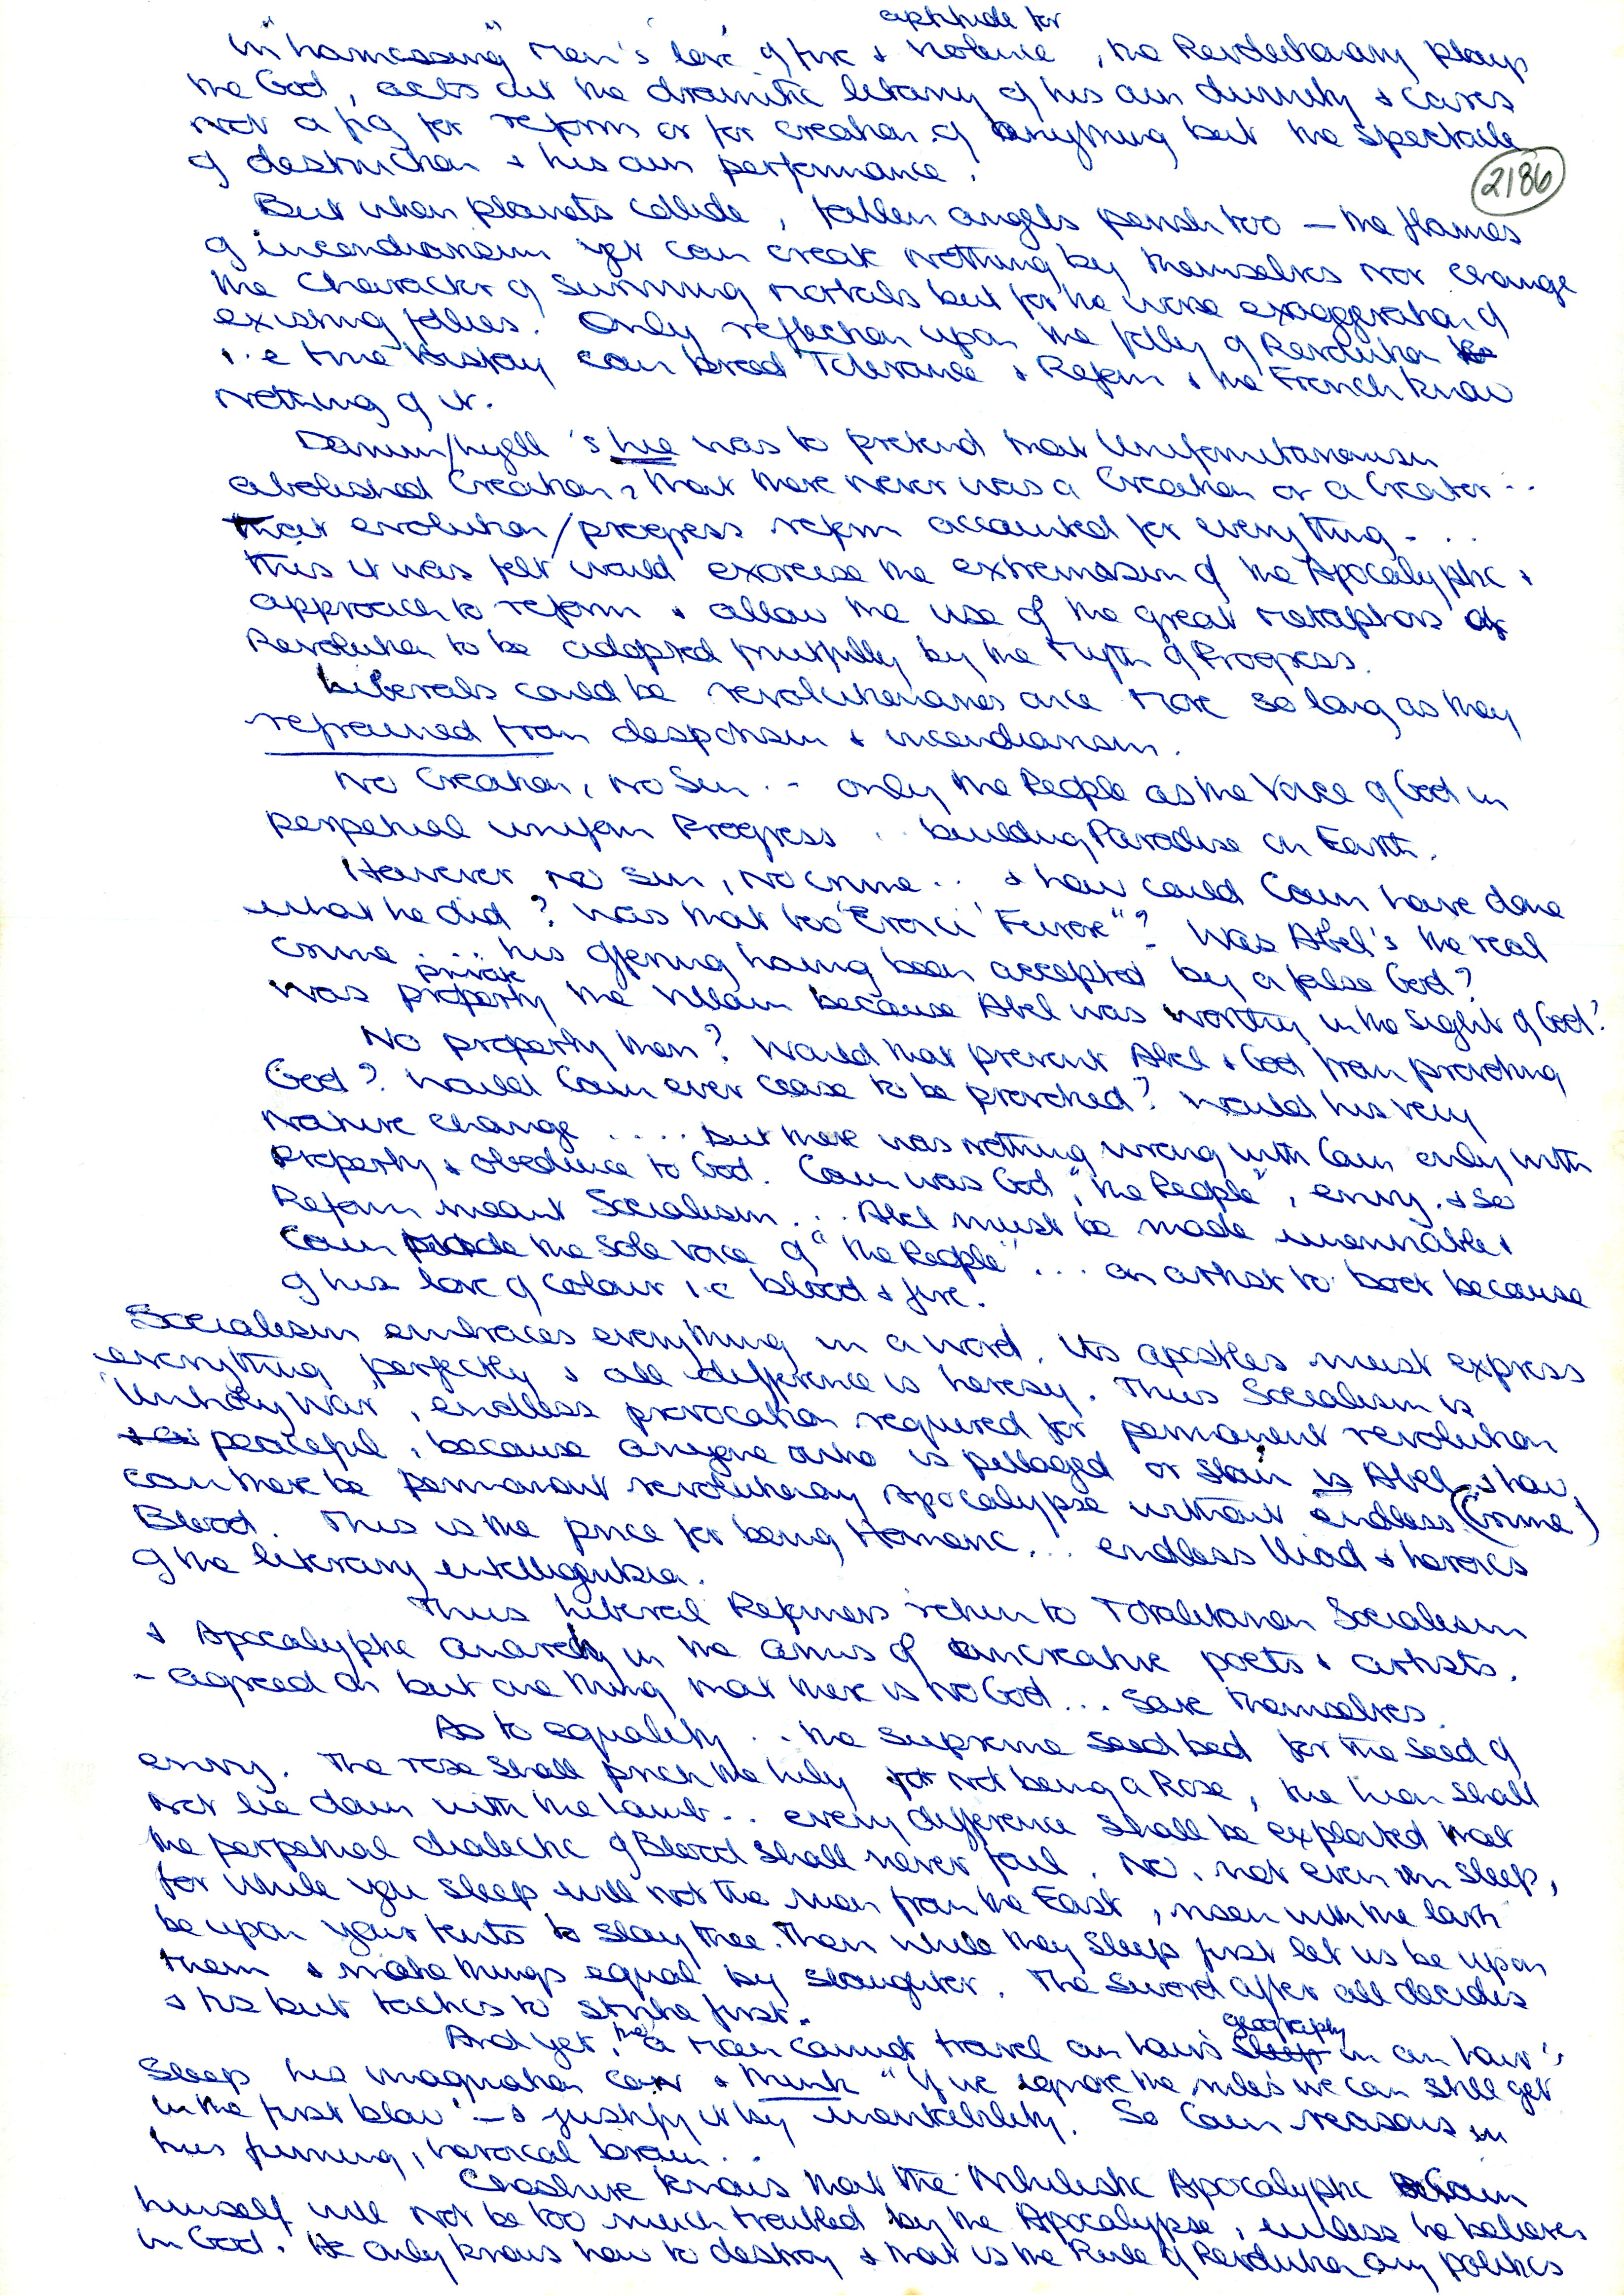 aptitude for
In "harnessing" Men's love of fire & violence, the Revolutionary plays
the God, acts out the dramatic litany of his own divinity & cares
not a fig for reform or for creation of anything but the spectacle
of destruction & his own performance.
2186
But when planets collide, fallen angels perish too — the flames
of incendiarism yet can create nothing by themselves nor change
the Character of surviving mortals but for the worse exaggeration of
existing follies. Only reflection upon the folly of Revolution
i.e true History can breed Tolerance & Reform & the French know
nothing of it.
Darwin/Lyell's lie was to pretend that Uniformitarianism
abolished Creation, that there never was a Creation or a Creator ..
that evolution/progress reform accounted for everything - ..
this it was felt would exorcise the extremism of the Apocalyptic
approach to reform & allow the use of the great metaphors of
Revolution to be adopted fruitfully by the Myth of Progress.
Liberals could be revolutionaries once more so long as they
refrained from despotism & incendiarism.
No Creation, No Sin .. only the People as the Voice of God in
perpetual uniform Progress .. building Paradise on Earth.
However no sin, no crime .. & how could Cain have done
what he did? Was that too "Eroici Furori"? Was Abel's the real
crime .... his offering having been accepted by a false God?
private
Was property the Villain because Abel was worthy in the sight of God?
No property then? Would that prevent Abel & God from provoking
God? Would Cain ever cease to be provoked? Would his very
nature change .... but there was nothing wrong with Cain only with
Property & obedience to God. Cain was God, "the People", envy, & so
Reform meant Socialism ... Abel must be made &
Cain made the sole voice of "the People" ... an artist to boot because
of his love of colour i.e blood & fire.
Socialism embraces everything in a word. Its apostles must express
everything perfectly & all difference is heresy. Thus Socialism is
'Unholy War', endless provocation required for permanent revolution
peaceful, because anyone who is pillaged or slain is Abel, & how
can there be permanent revolutionary Apocalypse without endless (crime)
Blood. This is the price for being Homeric ... endless Iliad & heroics
of the literary intelligentsia.
Thus Liberal Reformers return to Totalitarian Socialism
& Apocalyptic anarchy in the arms of uncreative poets & artists.
- agreed on but one thing that there is no God ... save themselves.
As to equality .. the supreme seed bed for the seed of
envy. The rose shall prick the lily for not being a Rose, the lion shall
not lie down with the lamb .. every difference shall be exploited that
the perpetual dialectic of Blood shall never fail. No, not even in sleep,
for while you sleep will not the man from the East, risen with the lark
be upon your tents to slay thee. Then while they sleep first let us be upon
them & make things equal by slaughter. The sword after all decides
& tis but tactics to strike first.
And yet, tho' a man cannot travel an hour's geography in an hour's
sleep his imagination can & think "if we ignore the miles we can still get
in the first blow" — & justify it by inevitability. So Cain reasons in
his fuming, heroical brain ..
Cheshire knows that the Nihilistic Apocalyptic Cain
himself will not be too much troubled by the Apocalypse, unless he believes
in God. He only knows how to destroy & that is the Rule of Revolutionary politics